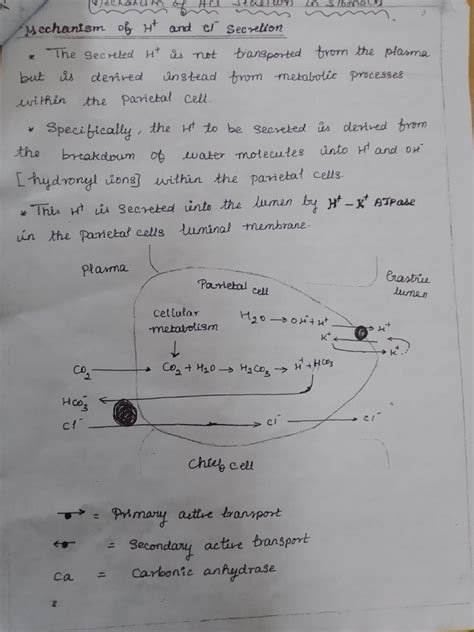 Mechanism of HCl Secretion in Stomach
Mechanism of H⁺ and Cl⁻ Secretion
* The secreted H⁺ is not transported from the plasma
but is derived instead from metabolic processes
within the Parietal Cell.
* Specifically, the H⁺ to be secreted is derived from
the breakdown of water molecules into H⁺ and OH⁻
[hydronyl ions] within the parietal cells.
* This H⁺ is secreted into the lumen by H⁺-K⁺ ATPase
in the Parietal cells luminal membrane.
Plasma
Parietal cell
Gastric
lumen
Cellular
metabolism
H₂O → OH⁻ + H⁺ → H⁺
K⁺
K⁺
CO₂ → CO₂ + H₂O → H₂CO₃ → H⁺ + HCO₃
HCO₃⁻
Cl⁻ → Cl⁻ → Cl⁻
Chief cell
= Primary active transport
= Secondary active transport
Ca = Carbonic anhydrase